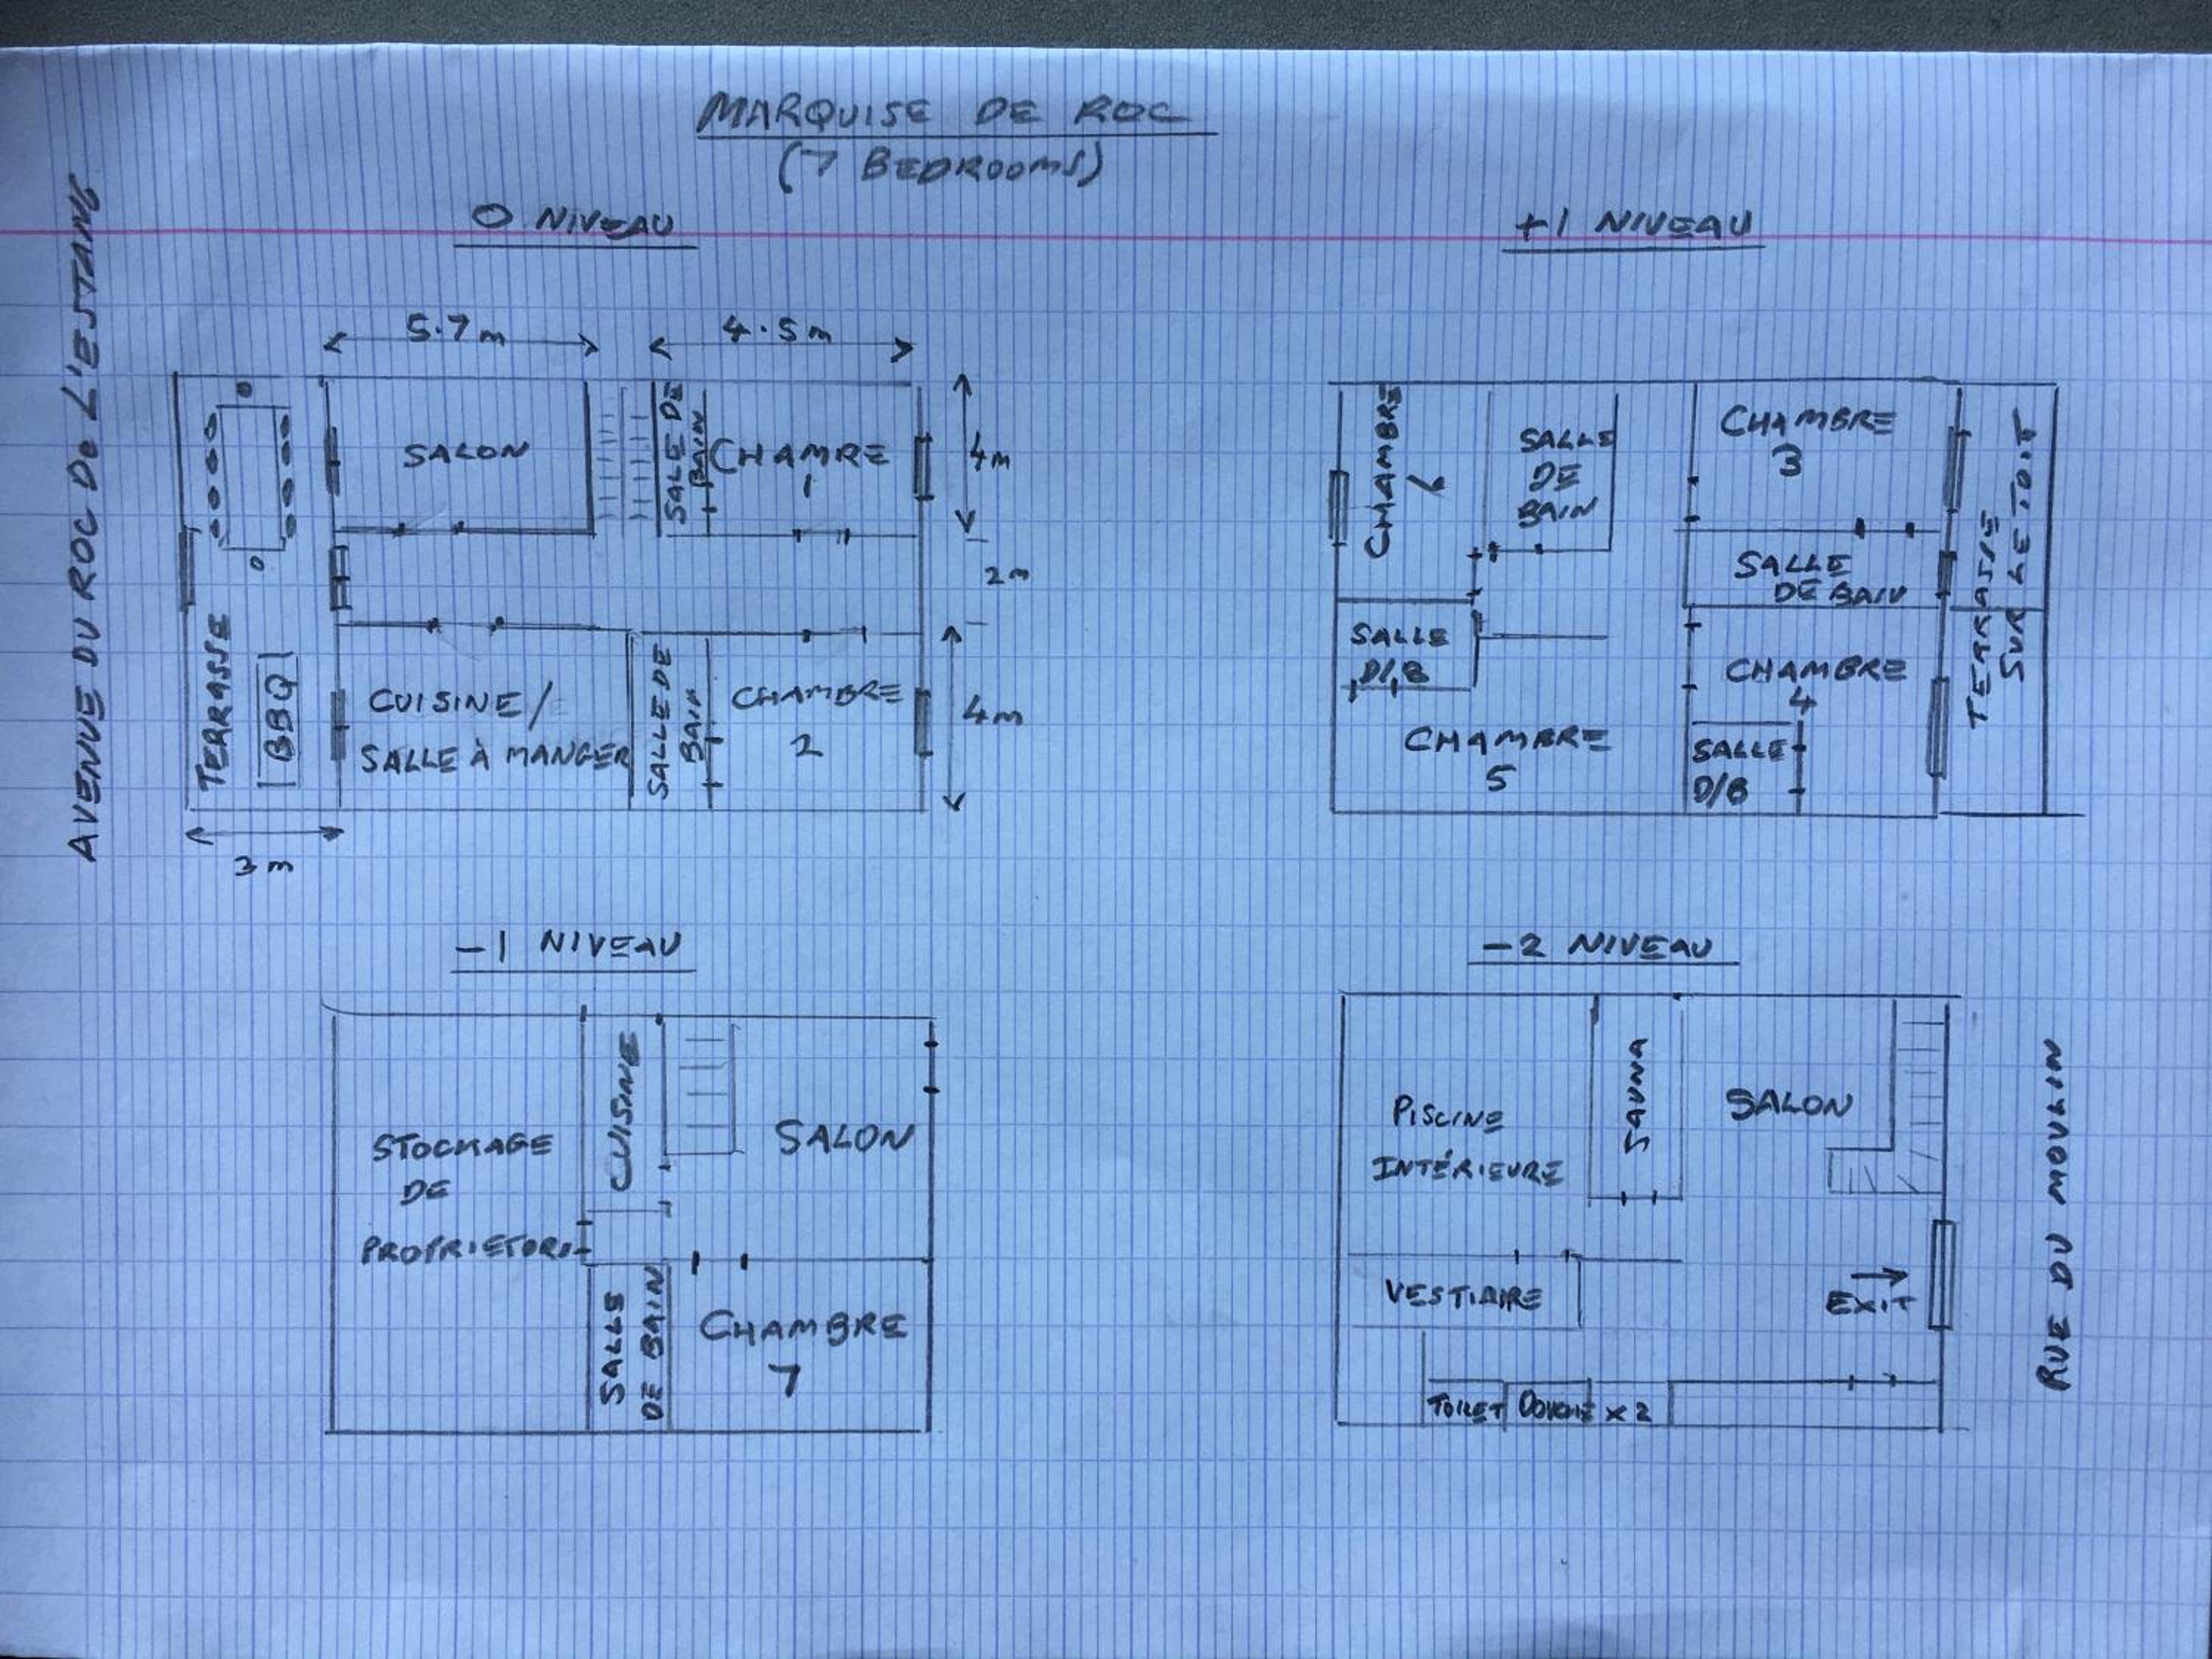 MARQUISE DE ROC
(7 BEDROOMS)
AVENUE DU ROC DE L'ESTANG
0 NIVEAU
5.7m
4.5m
SALON
SALE DE
BAIN
CHAMRE
1
4m
2m
TERRASSE
BBQ
CUISINE/
SALLE À MANGER
SALLE DE
BAIN
CHAMBRE
2
4m
3m
+1 NIVEAU
CHAMBRE
6
SALLE
DE
BAIN
CHAMBRE
3
SALLE
DE BAIN
TERRASSE
SUR LE TOIT
SALLE
D/B
CHAMBRE
5
CHAMBRE
4
SALLE
D/B
-1 NIVEAU
STOCKAGE
DE
PROPRIETORI
CUISINE
SALON
SALLE
DE BAIN
CHAMBRE
7
-2 NIVEAU
PISCINE
INTÉRIEURE
SAUNA
SALON
VESTIAIRE
EXIT
TOILET
DOUCHE x 2
RUE DU MOULIN